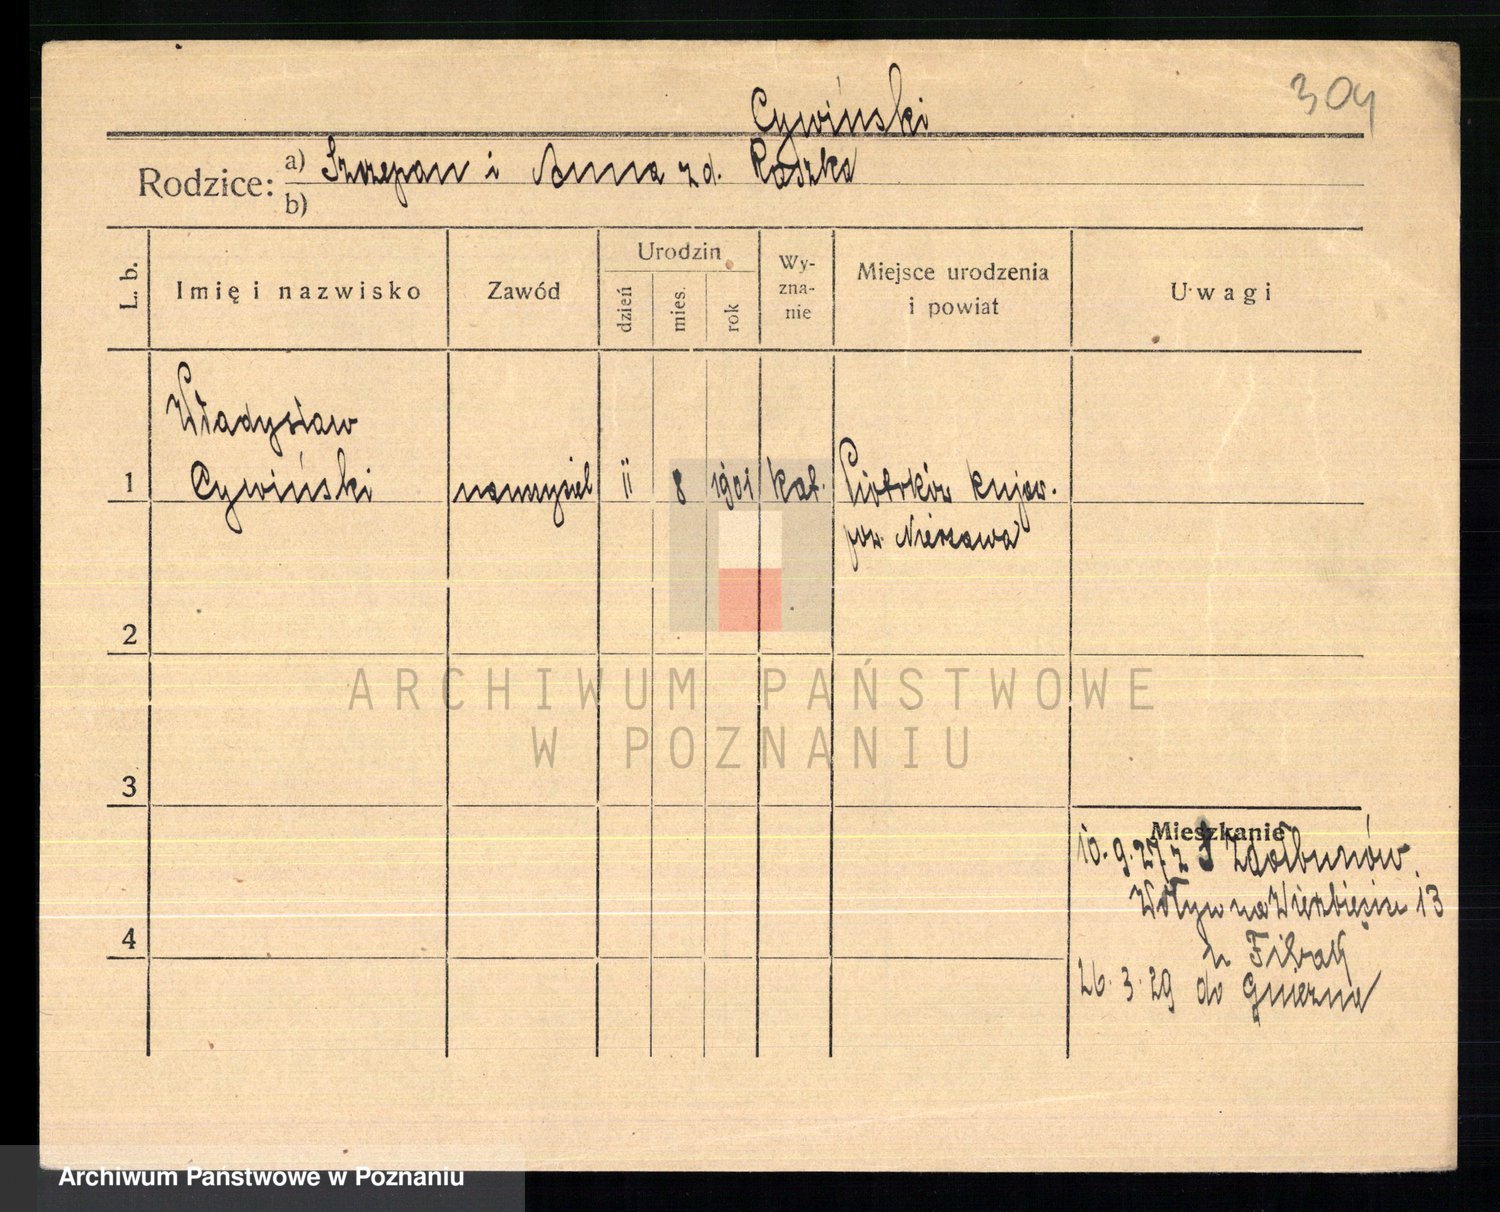 304
Cywiński
Rodzice: a) Szczepan i Anna z d. Raszka
b)
L. b. Imię i nazwisko Zawód Urodzin dzień mies. rok Wyznanie Miejsce urodzenia i powiat Uwagi
Władysław
1 Cywiński nauczyciel 11 8 1901 kat. Piotrków kujaw.
pow. Nieszawa
2
ARCHIWUM PAŃSTWOWE
W POZNANIU
3
Mieszkanie
10.9.27 z Zdołbunów
Wołyn na Wierzbięcice 13
4
26.3.29 do Gniezna
Archiwum Państwowe w Poznaniu